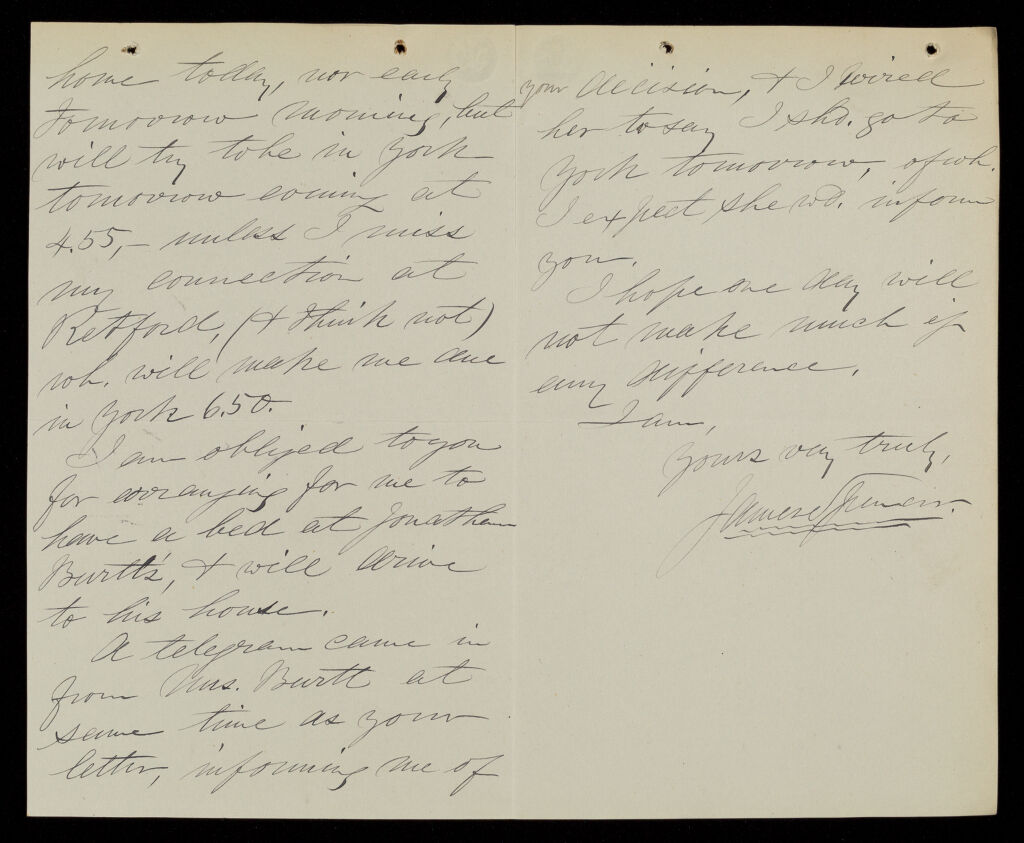 home today, nor early
tomorrow morning, but
will try to be in York
tomorrow evening at
4.55, – unless I miss
my connection at
Retford, (& think not)
wh. will make me due
in York 6.50.
I am obliged to you
for arranging for me to
have a bed at Jonathan
Burtt's, & will drive
to his house.
A telegram came in
from Mrs. Burtt at
same time as your
letter, informing me of
your decision, & I wired
her to say I shd. go to
York tomorrow, of wh.
I expect she wd. inform
you.
I hope one day will
not make much if
any difference.
I am,
yours very truly,